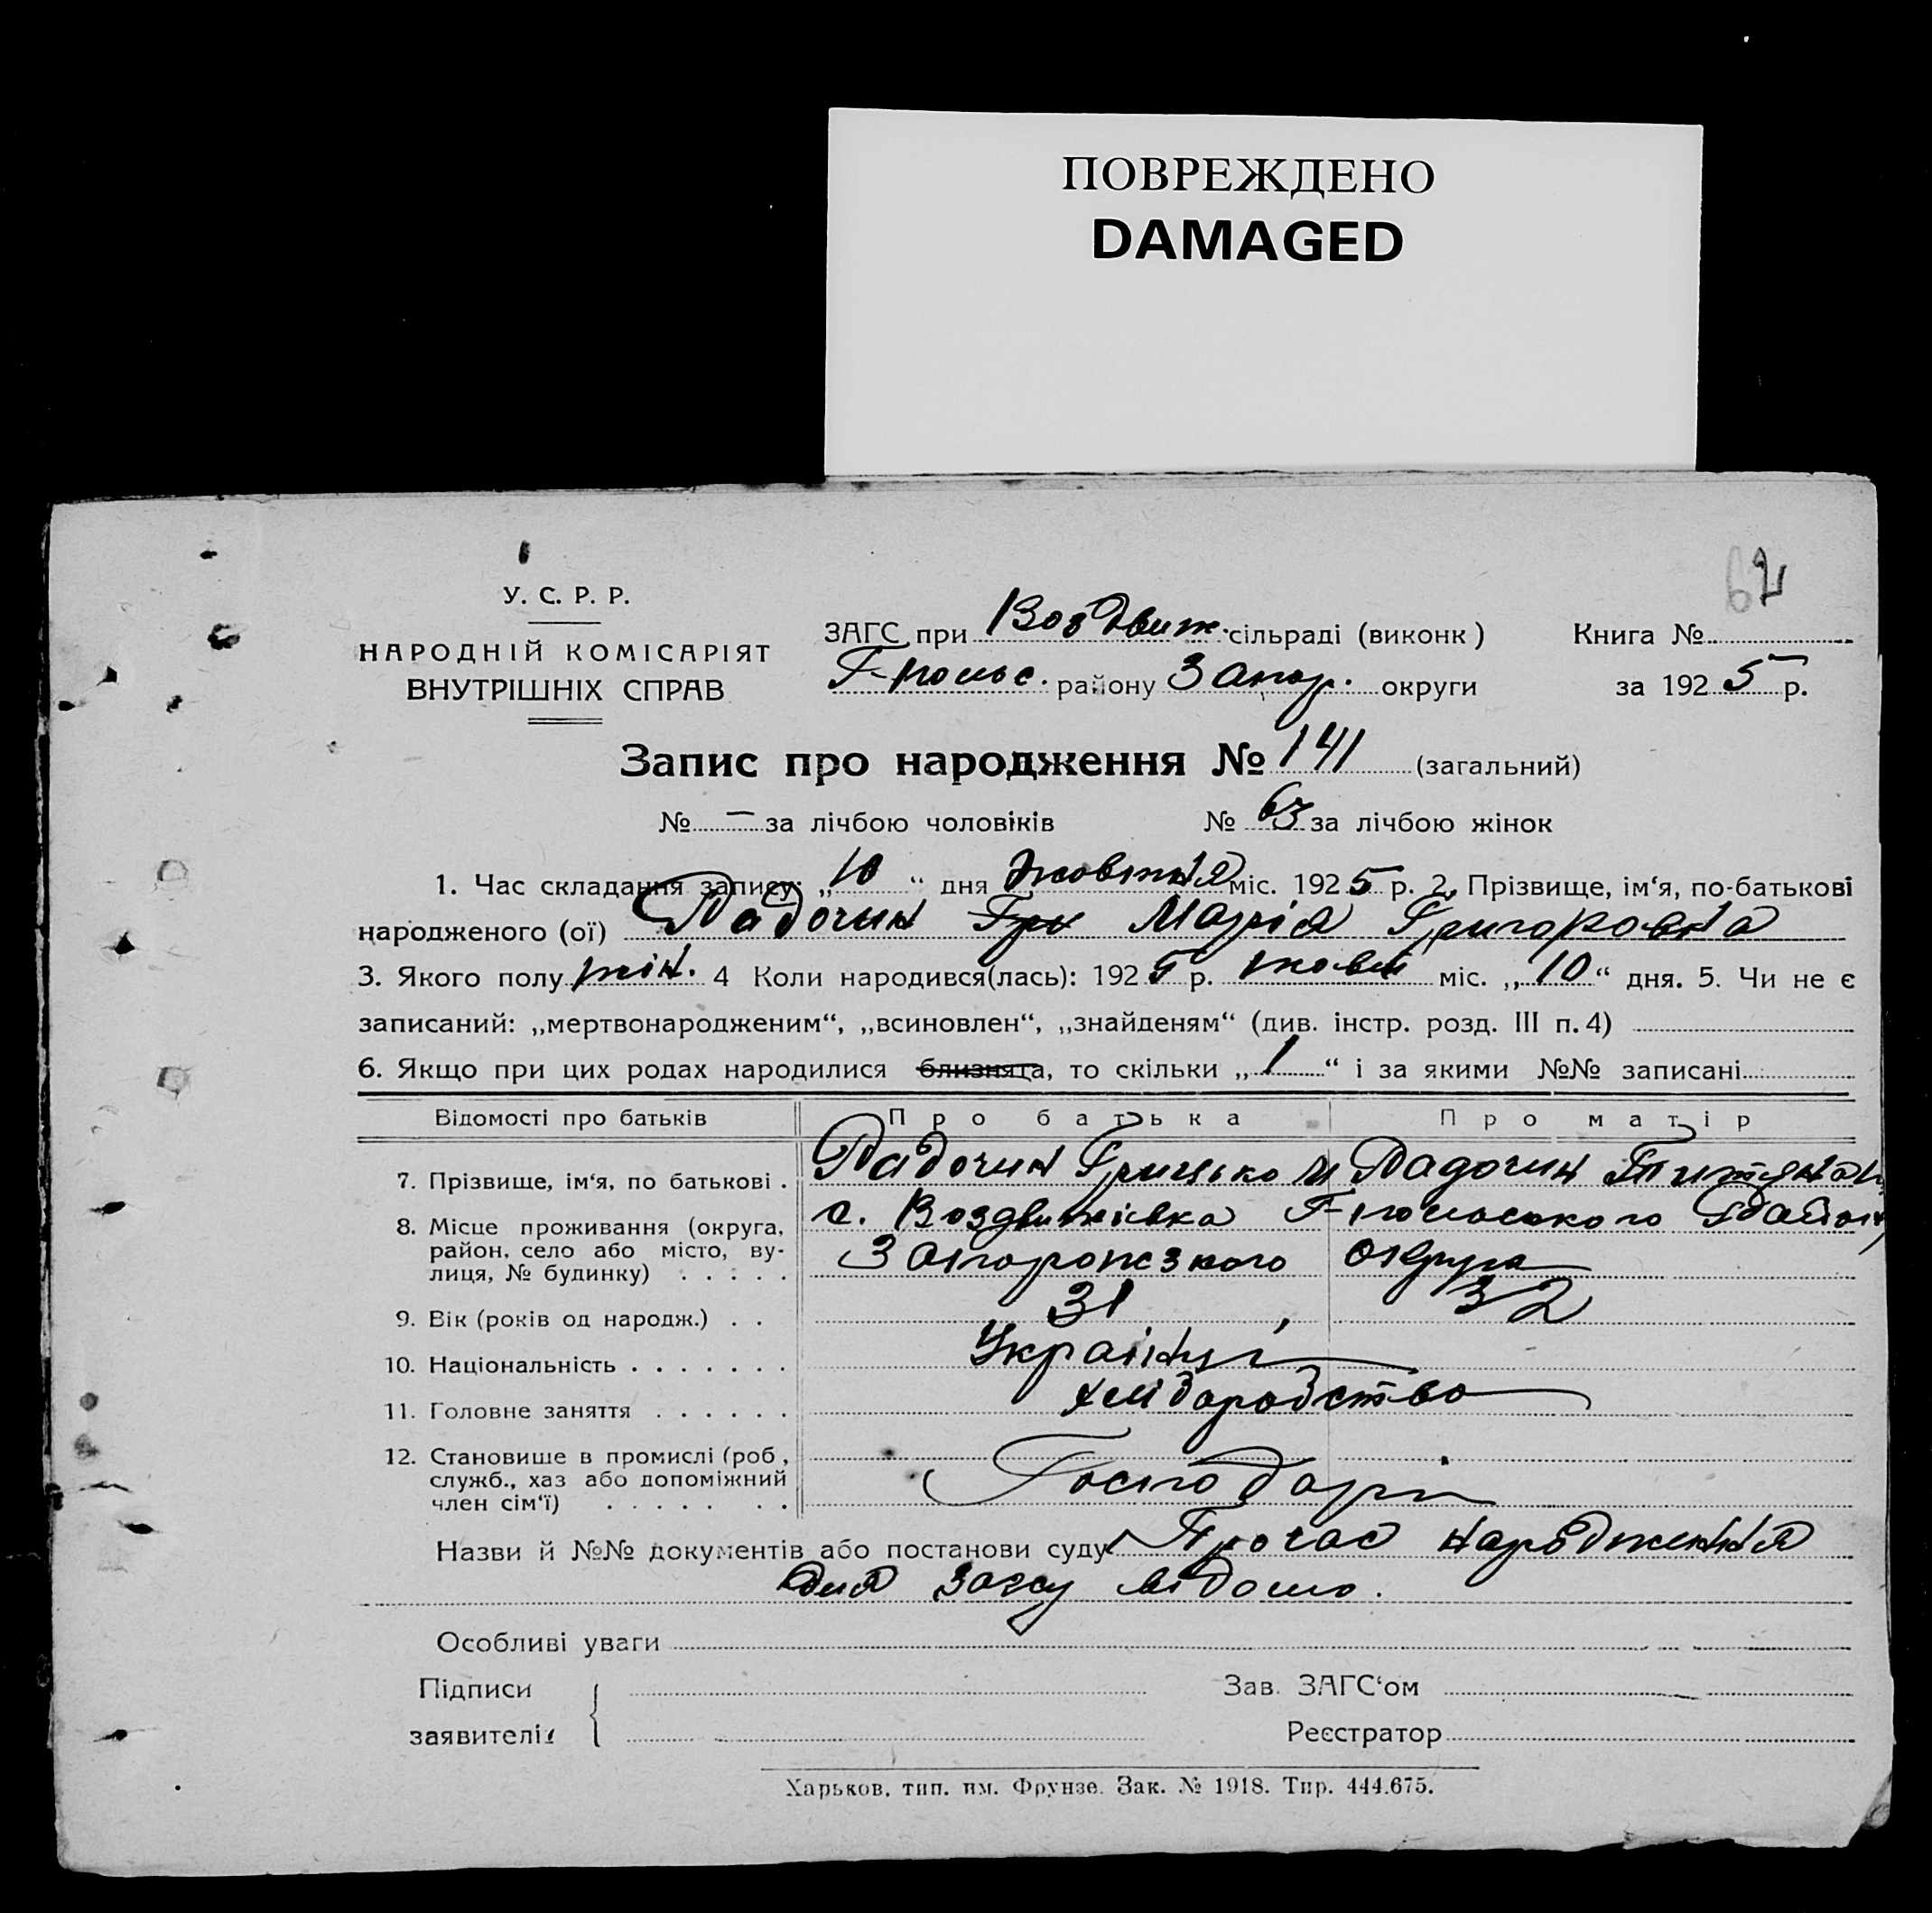 ПОВРЕЖДЕНО
DAMAGED
62
У. С. Р. Р.
НАРОДНІЙ КОМІСАРІЯТ
ВНУТРІШНІХ СПРАВ
ЗАГС при Воздвиж. сільраді (виконк)
Г-польс. району Запор. округи
Книга №
за 1925 р.
Запис про народження № 141 (загальний)
№ — за лічбою чоловіків № 63 за лічбою жінок
1. Час складання запису: „10“ дня Жовтня міс. 1925 р. 2. Прізвище, ім‘я, по-батькові
народженого (ої) Радочин Гри Марія Григоровна
3. Якого полу жін. 4 Коли народився(лась): 1925 р. жовт міс. „10“ дня. 5. Чи не є
записаний: „мертвонародженим“, „всиновлен“, „знайденям“ (див. інстр. розд. III п. 4)
6. Якщо при цих родах народилися близнята, то скільки „1“ і за якими №№ записані
Відомості про батьків Про батька Про матір
7. Прізвище, ім‘я, по батькові . Радочин Грицько Радочин
8. Місце проживання (округа, район, село або місто, вулиця, № будинку) . . . . . с. Воздвижівка Г-польського Району
Запорожзкого округа
9. Вік (років од народж.) . . 31 32
10. Національність . . . . . . . Українці
11. Головне заняття . . . . . . хліборобство
12. Становище в промислі (роб, служб., хаз або допоміжний член сім‘ї) . . . . . . . Господарі
Назви й №№ документів або постанови суду Про час народження
для загсу відомо.
Особливі уваги
Підписи
заявителів
Зав. ЗАГС‘ом
Реєстратор
Харьков, тип. им. Фрунзе. Зак. № 1918. Тир. 444.675.